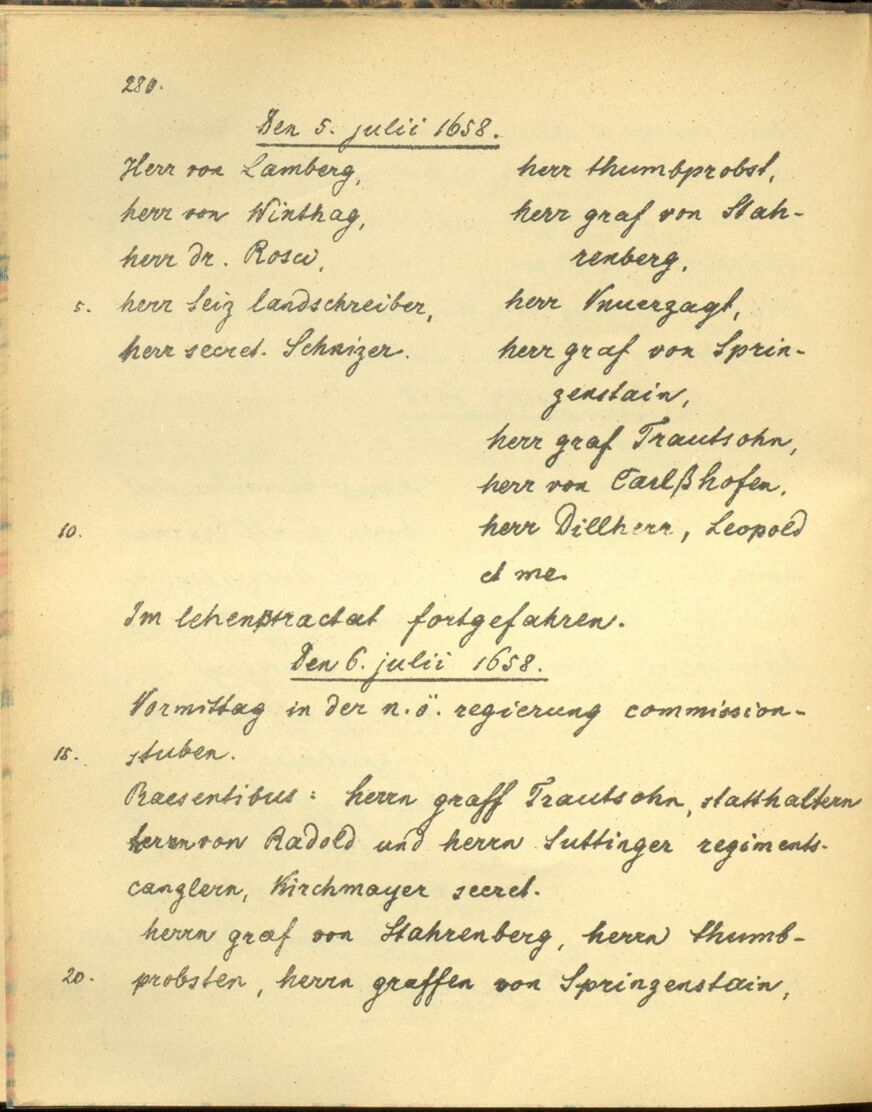 280.
Den 5. julii 1658.
Herr von Lamberg,
herr von Winthag,
herr dr. Rosw,
5. herr Seiz landschreiber,
herr secret. Schnizer.
herr thumbprobst,
herr graf von Stah-
renberg,
herr Vnuerzagt,
herr graf von Sprin-
zenstain,
herr graf Trautsohn,
herr von Carlßhofen,
10. herr Dillherr, Leopold
et me.
Im lehenßtractat fortgefahren.
Den 6. julii 1658.
Vormittag in der n. ö. regierung commission-
15. stuben.
Praesentibus: herrn graff Trautsohn, statthaltern
herrn von Radold und herrn Suttinger regiments-
canzlern, Kirchmayer secret.
herrn graf von Stahrenberg, herrn thumb-
20. probsten, herrn graffen von Springenstain,